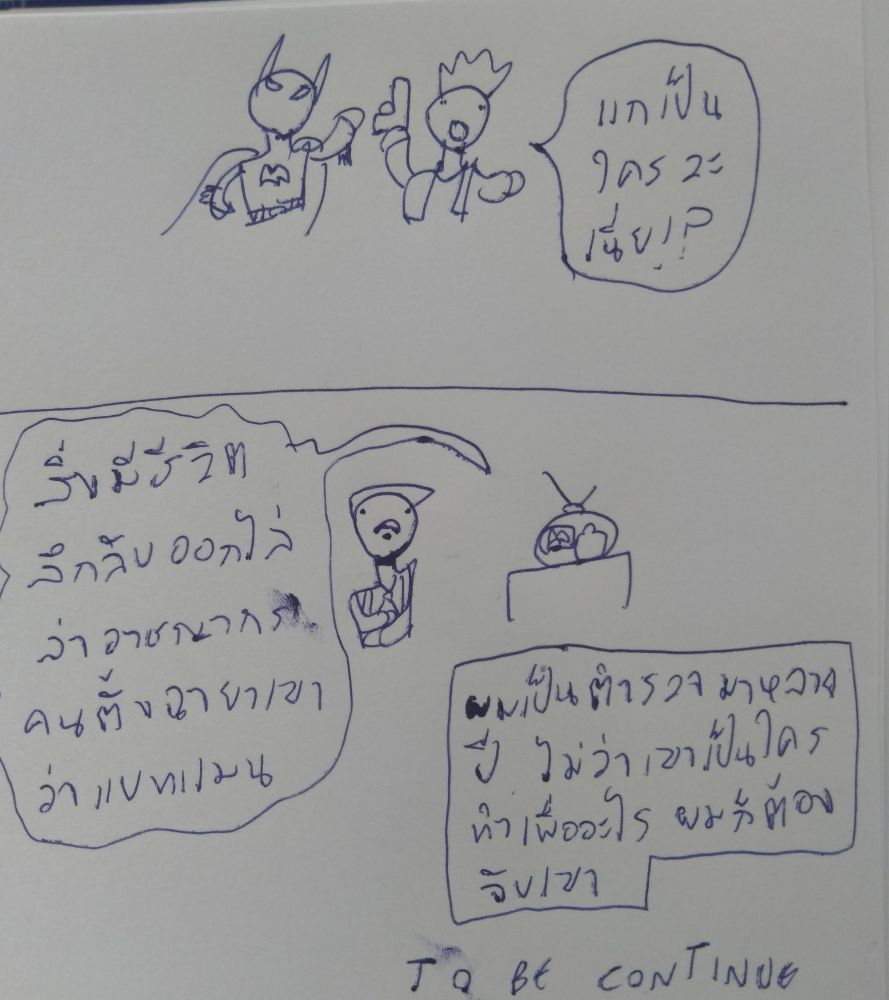 แกเป็น
ใครวะ
เนี่ย!?
สิ่งมีชีวิต
ลึกลับออกไล่
ล่าอาชญากร
คนตั้งฉายาเขา
ว่าแบทแมน
ผมเป็นตำรวจมาหลาย
ปี ไม่ว่าเขาเป็นใคร
ทำเพื่ออะไร ผมก็ต้อง
จับเขา
TO BE CONTINUE